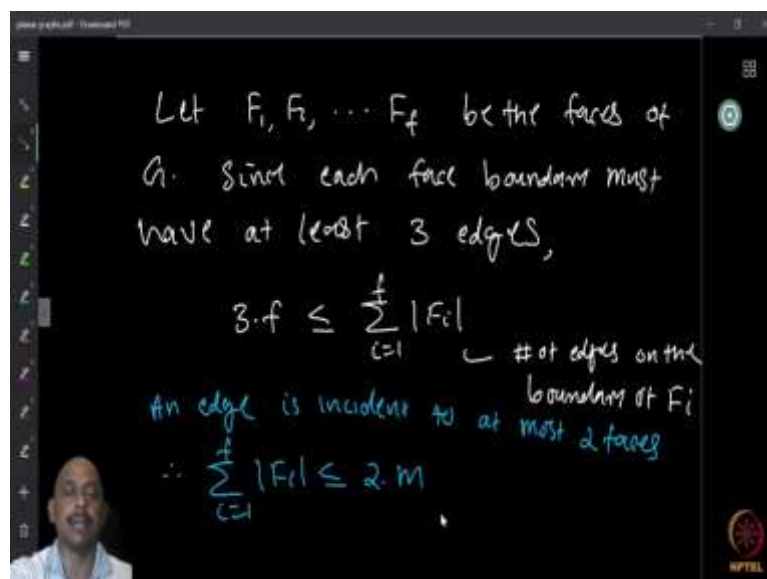 Let F₁, F₂, ⋯ F_f be the faces of
G. Since each face boundary must
have at least 3 edges,
3.f ≤ ∑_{i=1}^{f} |Fᵢ|
# of edges on the
boundary of Fᵢ
An edge is incident to at most 2 faces
∴ ∑_{i=1}^{f} |Fᵢ| ≤ 2.m
NPTEL